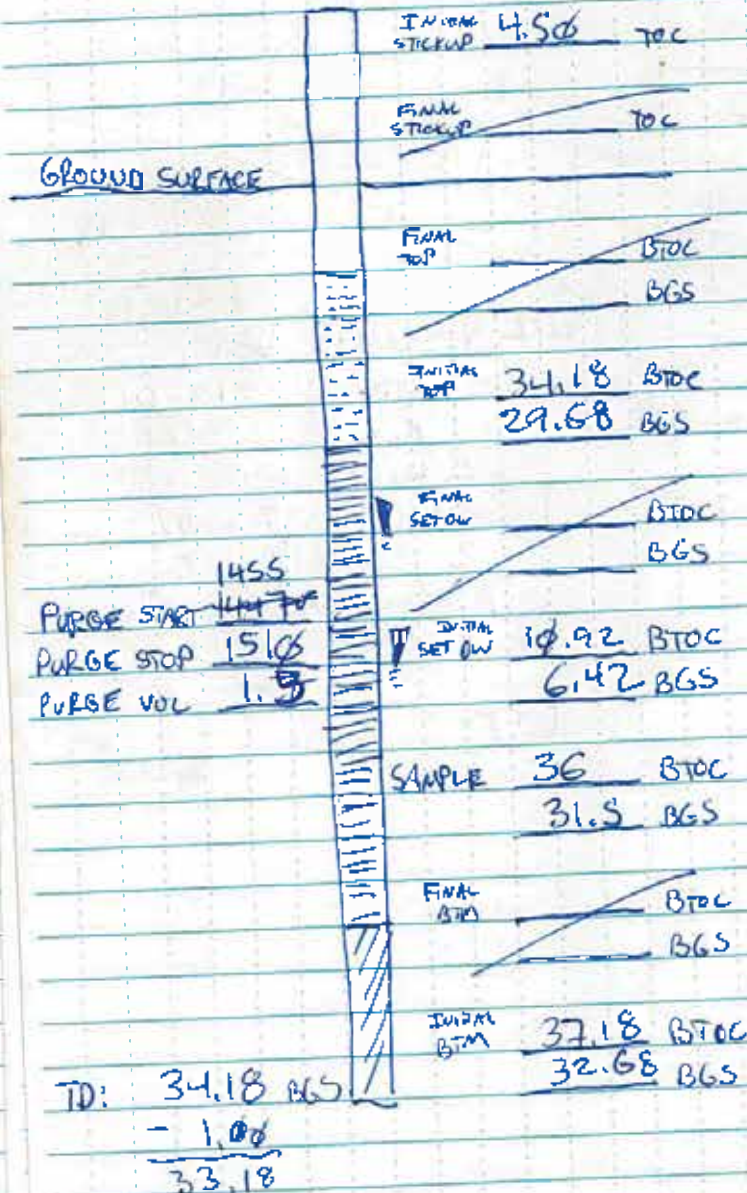 INITIAL STICKUP 4.50 TOC
FINAL STICKUP TOC
GROUND SURFACE
FINAL TOP BTOC
BGS
INITIAL TOP 34.18 BTOC
29.68 BGS
FINAL SET DW BTOC
BGS
1455
PURGE START
PURGE STOP 1510
PURGE VOL 1.5
INITIAL SET DW 10.92 BTOC
6.42 BGS
SAMPLE 36 BTOC
31.5 BGS
FINAL BTM BTOC
BGS
INITIAL BTM 37.18 BTOC
32.68 BGS
TD: 34.18 BGS
- 1.00
33.18